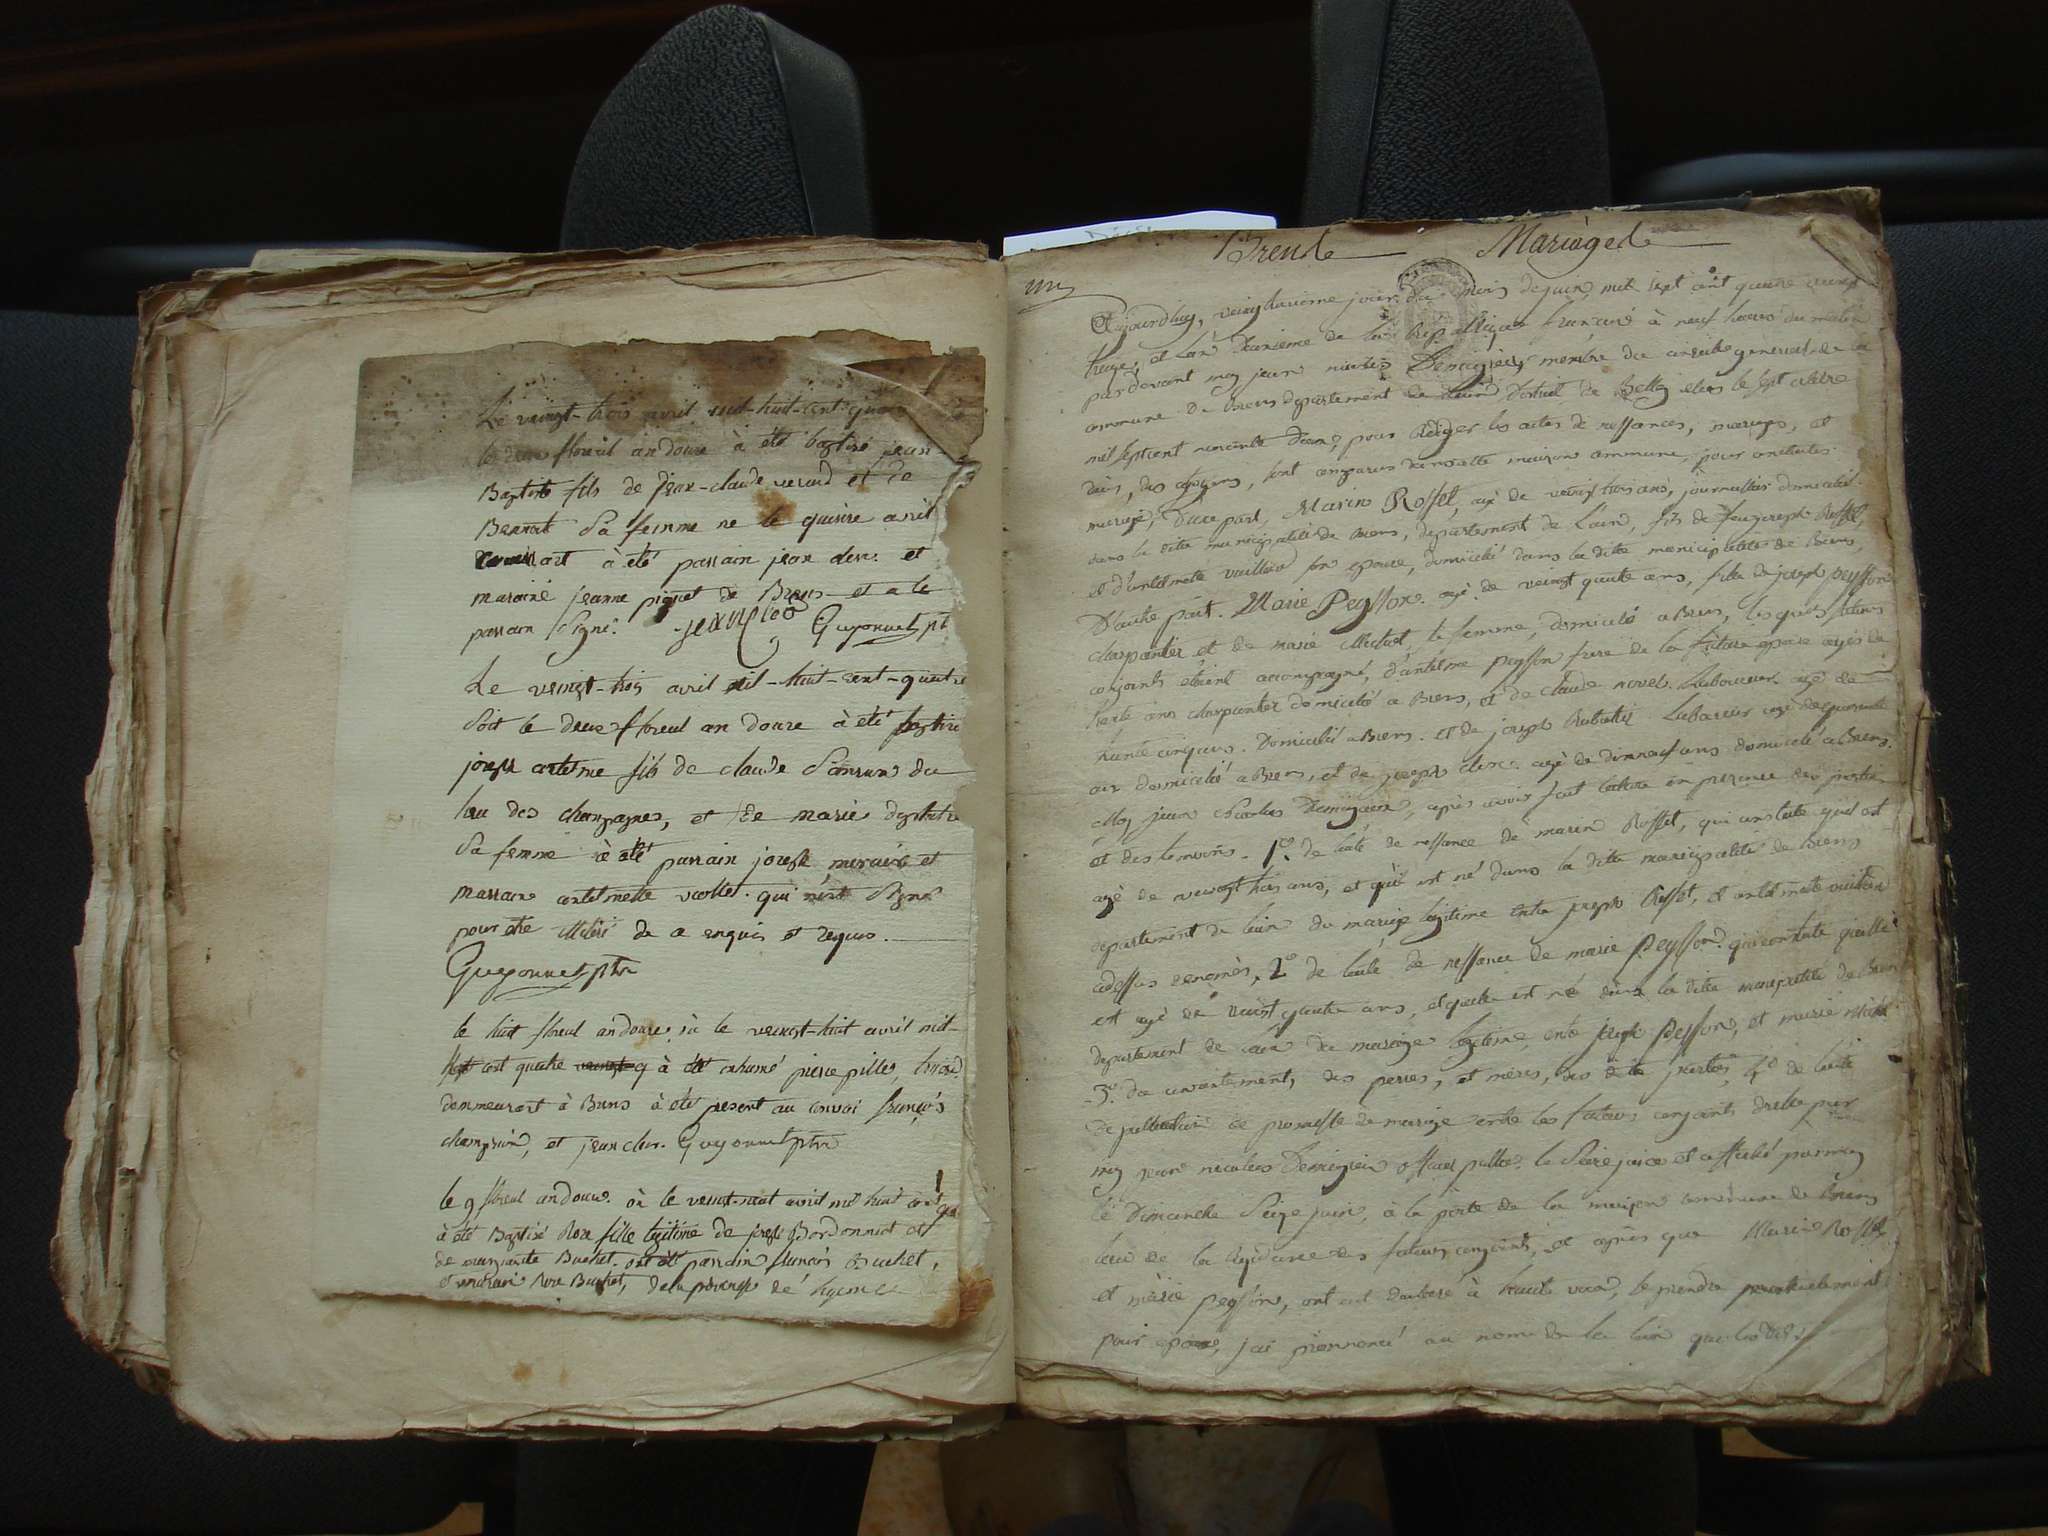 Le veingt-trois avril mil-huit-cent-quatre
le deux floreal an douze à été baptisé jean-
Baptiste fils de jean-claude verard et de
Benoite Sa femme ne le quinze avril
à été parrain jean clerc et
maraine jeanne piquet de Brens et a le
parrain Signé. jean clerc Guyonnet ptr
Le veingt-trois avril mil-huit-cent-quatre
Soit le deux floreal an douze à été baptisé
joseph antelme fils de claude du
lieu des champagnes, et de marie
Sa femme à été parrain joseph et
marraine antelmette qui n'ont Signé
pour être illitéré de ce enquis et requis.
Guyonnet ptr
le huit floreal an douze, où le veingt-huit avril mil-
huit cent quatre à été inhumé pierre pillet,
demmeurant à Brens à été present au convoi françois
champion, et jean clerc. Guyonnet ptr
le 9 floreal an douze. où le veingt-neuf avril mil huit cent
à été Baptisé Rose fille légitime de joseph Bordonnat et
de marguerite Buchet. ont été parrain francois Buchet,
et maraine Rose Buchet, de la paroisse de
Brens Mariage
Aujourdhuy, veingtneuvieme jour du mois de juin, mil sept cent quatre veingt
treize, et l'an deuxieme de la République francaise à neuf heures du matin
pardevant moy jean nicolas Demigieu, membre du conseil general de la
commune de Brens departement de l'ain District de Belley elu le sept
mil sept cent nonante deux, pour Rédiger les actes de nessances, mariages, et
décès, des citoyens, sont comparus dans cette maison commune, pour contracter
mariage, d'une part, Marin Rosset, agé de veingt trois ans, journallier domicilié
dans la dite municipalité de Brens, departement de L'ain, fils de feu joseph Rosset,
et d'antelmete vuillier son epouse, domicilié dans la dite municipalité de Brens,
D'autre part. Marie Peysson. agé de veingt quatre ans, fille de joseph peysson
charpentier et de marie sa femme, domicilié a Brens, lesquels futurs
conjoints étaient accompagné, d'antelme peysson frere de la future epouse agés de
trente ans charpentier domicilié a Brens, et de claude novel Laboureur agé de
trente cinq ans. Domicilié a Brens. et de joseph Laboureur agé de quarante
ans domicilié a Brens, et de joseph clerc agé de dixneuf ans domicilié a Brens.
Moy jean nicolas Demigieu, après avoir fait lecture en presence des parties
et des temoins. 1º. de l'acte de nessance de marin Rosset, qui constate qu'il est
agé de veingt trois ans, et qu'il est né dans la ditte municipalité de Brens
departement de l'ain du mariage legitime entre joseph Rosset, et antelmete vuillier
cidessus denomés, 2º de l'acte de nessance de marie Peysson qui constate qu'elle
est agé de veingt quatre ans, et quelle est né dans la ditte municipalité de Brens
departement de l'ain du mariage legitime, entre joseph Peysson, et marie
3º. du consentement, des peres, et mères, des dites parties, 4º de l'acte
de publication de promesse de mariage entre les futurs conjoints dressé par
moy jean nicolas Demigieu officier public le Seize juin et affiché par moy
le Dimanche Seize juin, à la porte de la maison commune de Brens
lieu de la Residance des futurs conjoints, et après que Marin Rosset
et marie peysson, ont eut declaré à haute voix, se prendre mutuelement
pour epoux, jai prononcé au nom de la loix que les dits